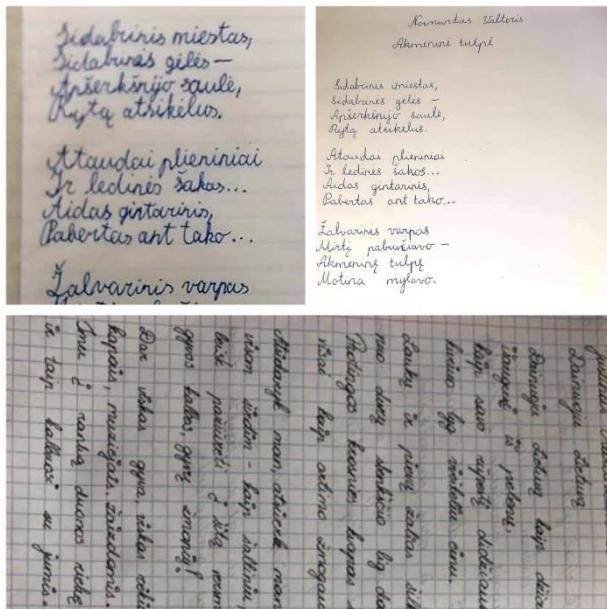 Sidabrinis miestas,
Sidabrinės gėlės –
Apšerkšnijo saulė,
Rytą atsikėlus.
Ataudai plieniniai
Ir ledinės šakos...
Aidas gintarinis,
Pabertas ant tako...
Žalvarinis varpas
Normundas Valteris
Akmeninė tulpė
Sidabrinis miestas,
Sidabrinės gėlės –
Apšerkšnijo saulė,
Rytą atsikėlus.
Ataudai plieniniai
Ir ledinės šakos...
Aidas gintarinis,
Pabertas ant tako...
Žalvarinis varpas
Mirtį pabučiavo –
Akmeninę tulpę
Motina mylavo.
Dainuoju Lietuvą
Dainuoju Lietuvą kaip
iš pelenų,
kaip savo rūpestį
lyg vieškeliu einu.
Laukų ir pievų žalias
nuo durų slenksčio lig
Protingas krosnies kvapas
visai kaip artimo
man, atverk man
visom širdim – kaip šaltiniu,
leisk pažiūrėti į šitą
gyvos kalbos, gyvų žmonių!
Dar viskas gyva, viskas
kapais, muziejais, žaizdomis.
Imu į ranką duonos riekę
ir taip kalbuosi su jumis.